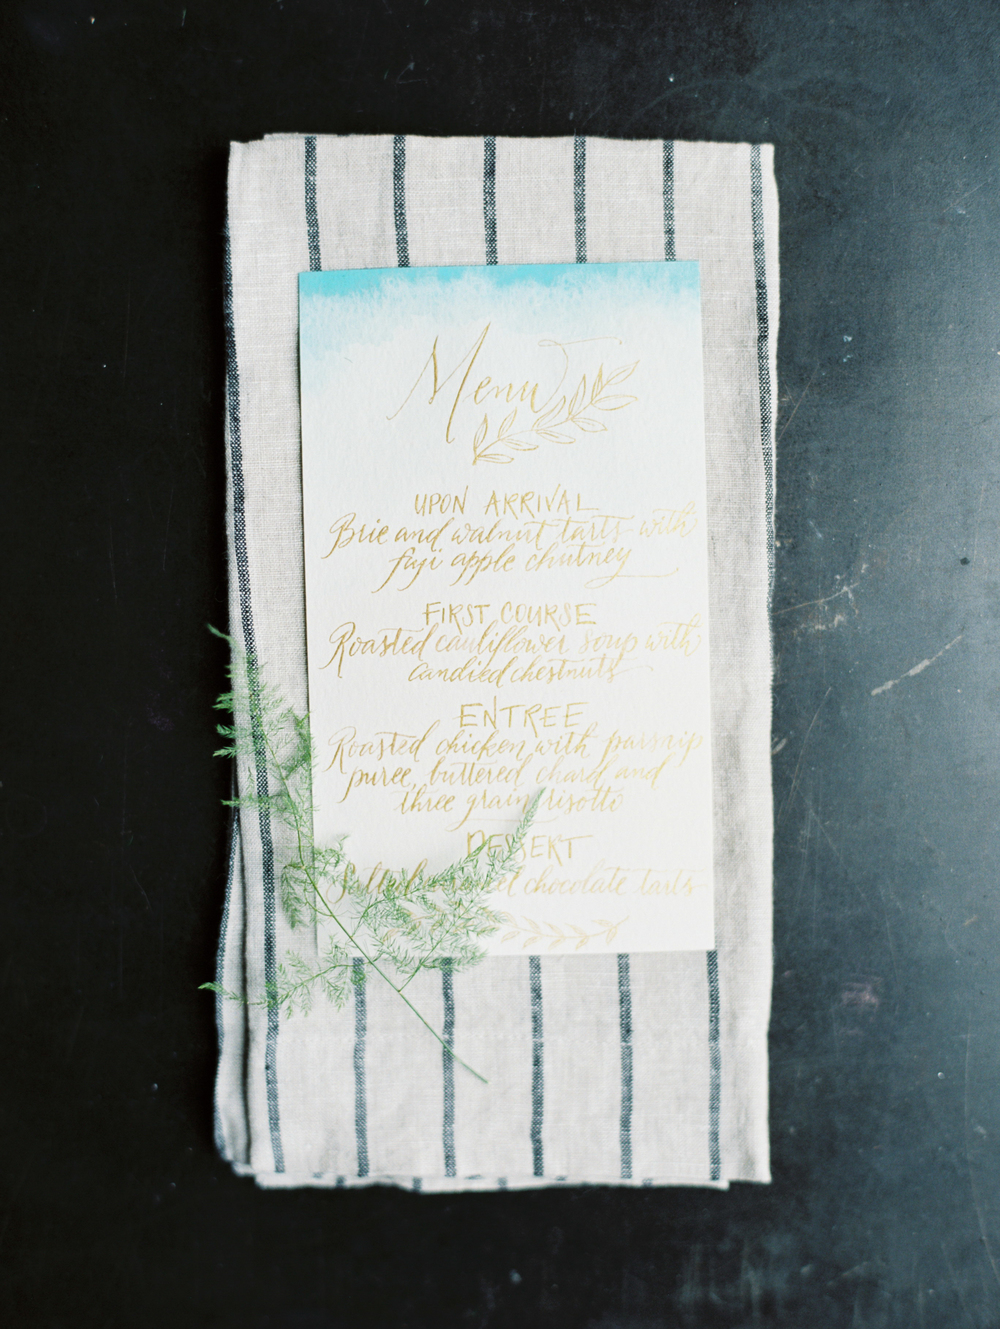 Menu
UPON ARRIVAL
Brie and walnut tarts with
fuji apple chutney
FIRST COURSE
Roasted cauliflower soup with
candied chestnuts
ENTREE
Roasted chicken with parsnip
puree, buttered chard and
three grain risotto
DESSERT
Salted caramel chocolate tarts